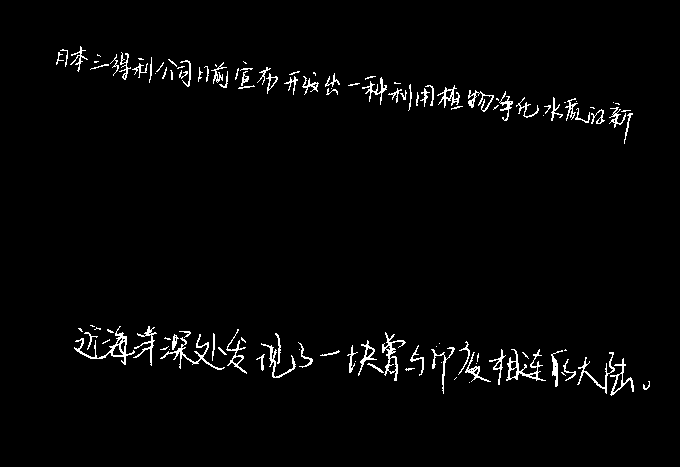 日本三得利公司日前宣布开发出一种利用植物净化水质的新
近海洋深处发现了一块曾与印度相连的大陆。